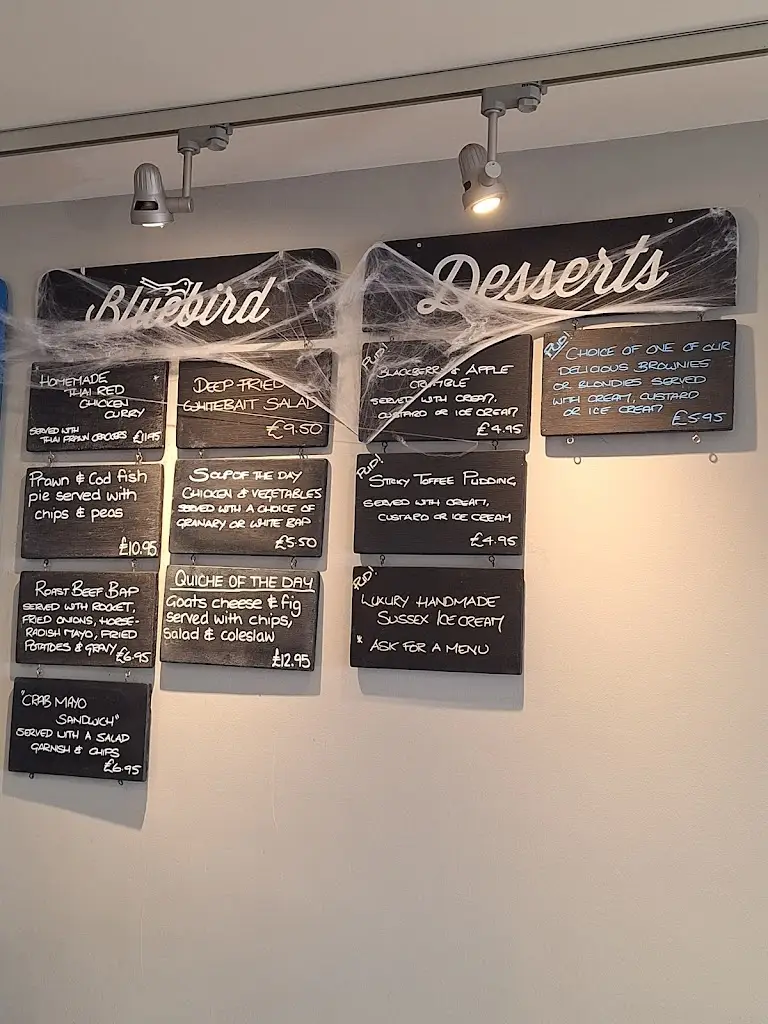 Bluebird
HOMEMADE
THAI RED
CHICKEN
CURRY
SERVED WITH
THAI PRAWN CRACKERS £11.95
Prawn & Cod fish
pie served with
chips & peas
£10.95
ROAST BEEF BAP
SERVED WITH ROCKET,
FRIED ONIONS, HORSE-
RADISH MAYO, FRIED
POTATOES & GRAVY £6.95
"CRAB MAYO
SANDWICH"
SERVED WITH A SALAD
GARNISH & CHIPS
£6.95
DEEP FRIED
WHITEBAIT SALAD
£9.50
SOUP OF THE DAY
CHICKEN & VEGETABLES
SERVED WITH A CHOICE OF
GRANARY OR WHITE BAP
£5.50
QUICHE OF THE DAY
Goats cheese & fig
served with chips,
salad & coleslaw
£12.95
Desserts
PUD!
BLACKBERRY & APPLE
CRUMBLE
SERVED WITH CREAM,
CUSTARD OR ICE CREAM
£4.95
PUD!
STICKY TOFFEE PUDDING
SERVED WITH CREAM,
CUSTARD OR ICE CREAM
£4.95
PUD!
LUXURY HANDMADE
SUSSEX ICE CREAM
* ASK FOR A MENU
PUD!
CHOICE OF ONE OF OUR
DELICIOUS BROWNIES
OR BLONDIES SERVED
WITH CREAM, CUSTARD
OR ICE CREAM
£5.95